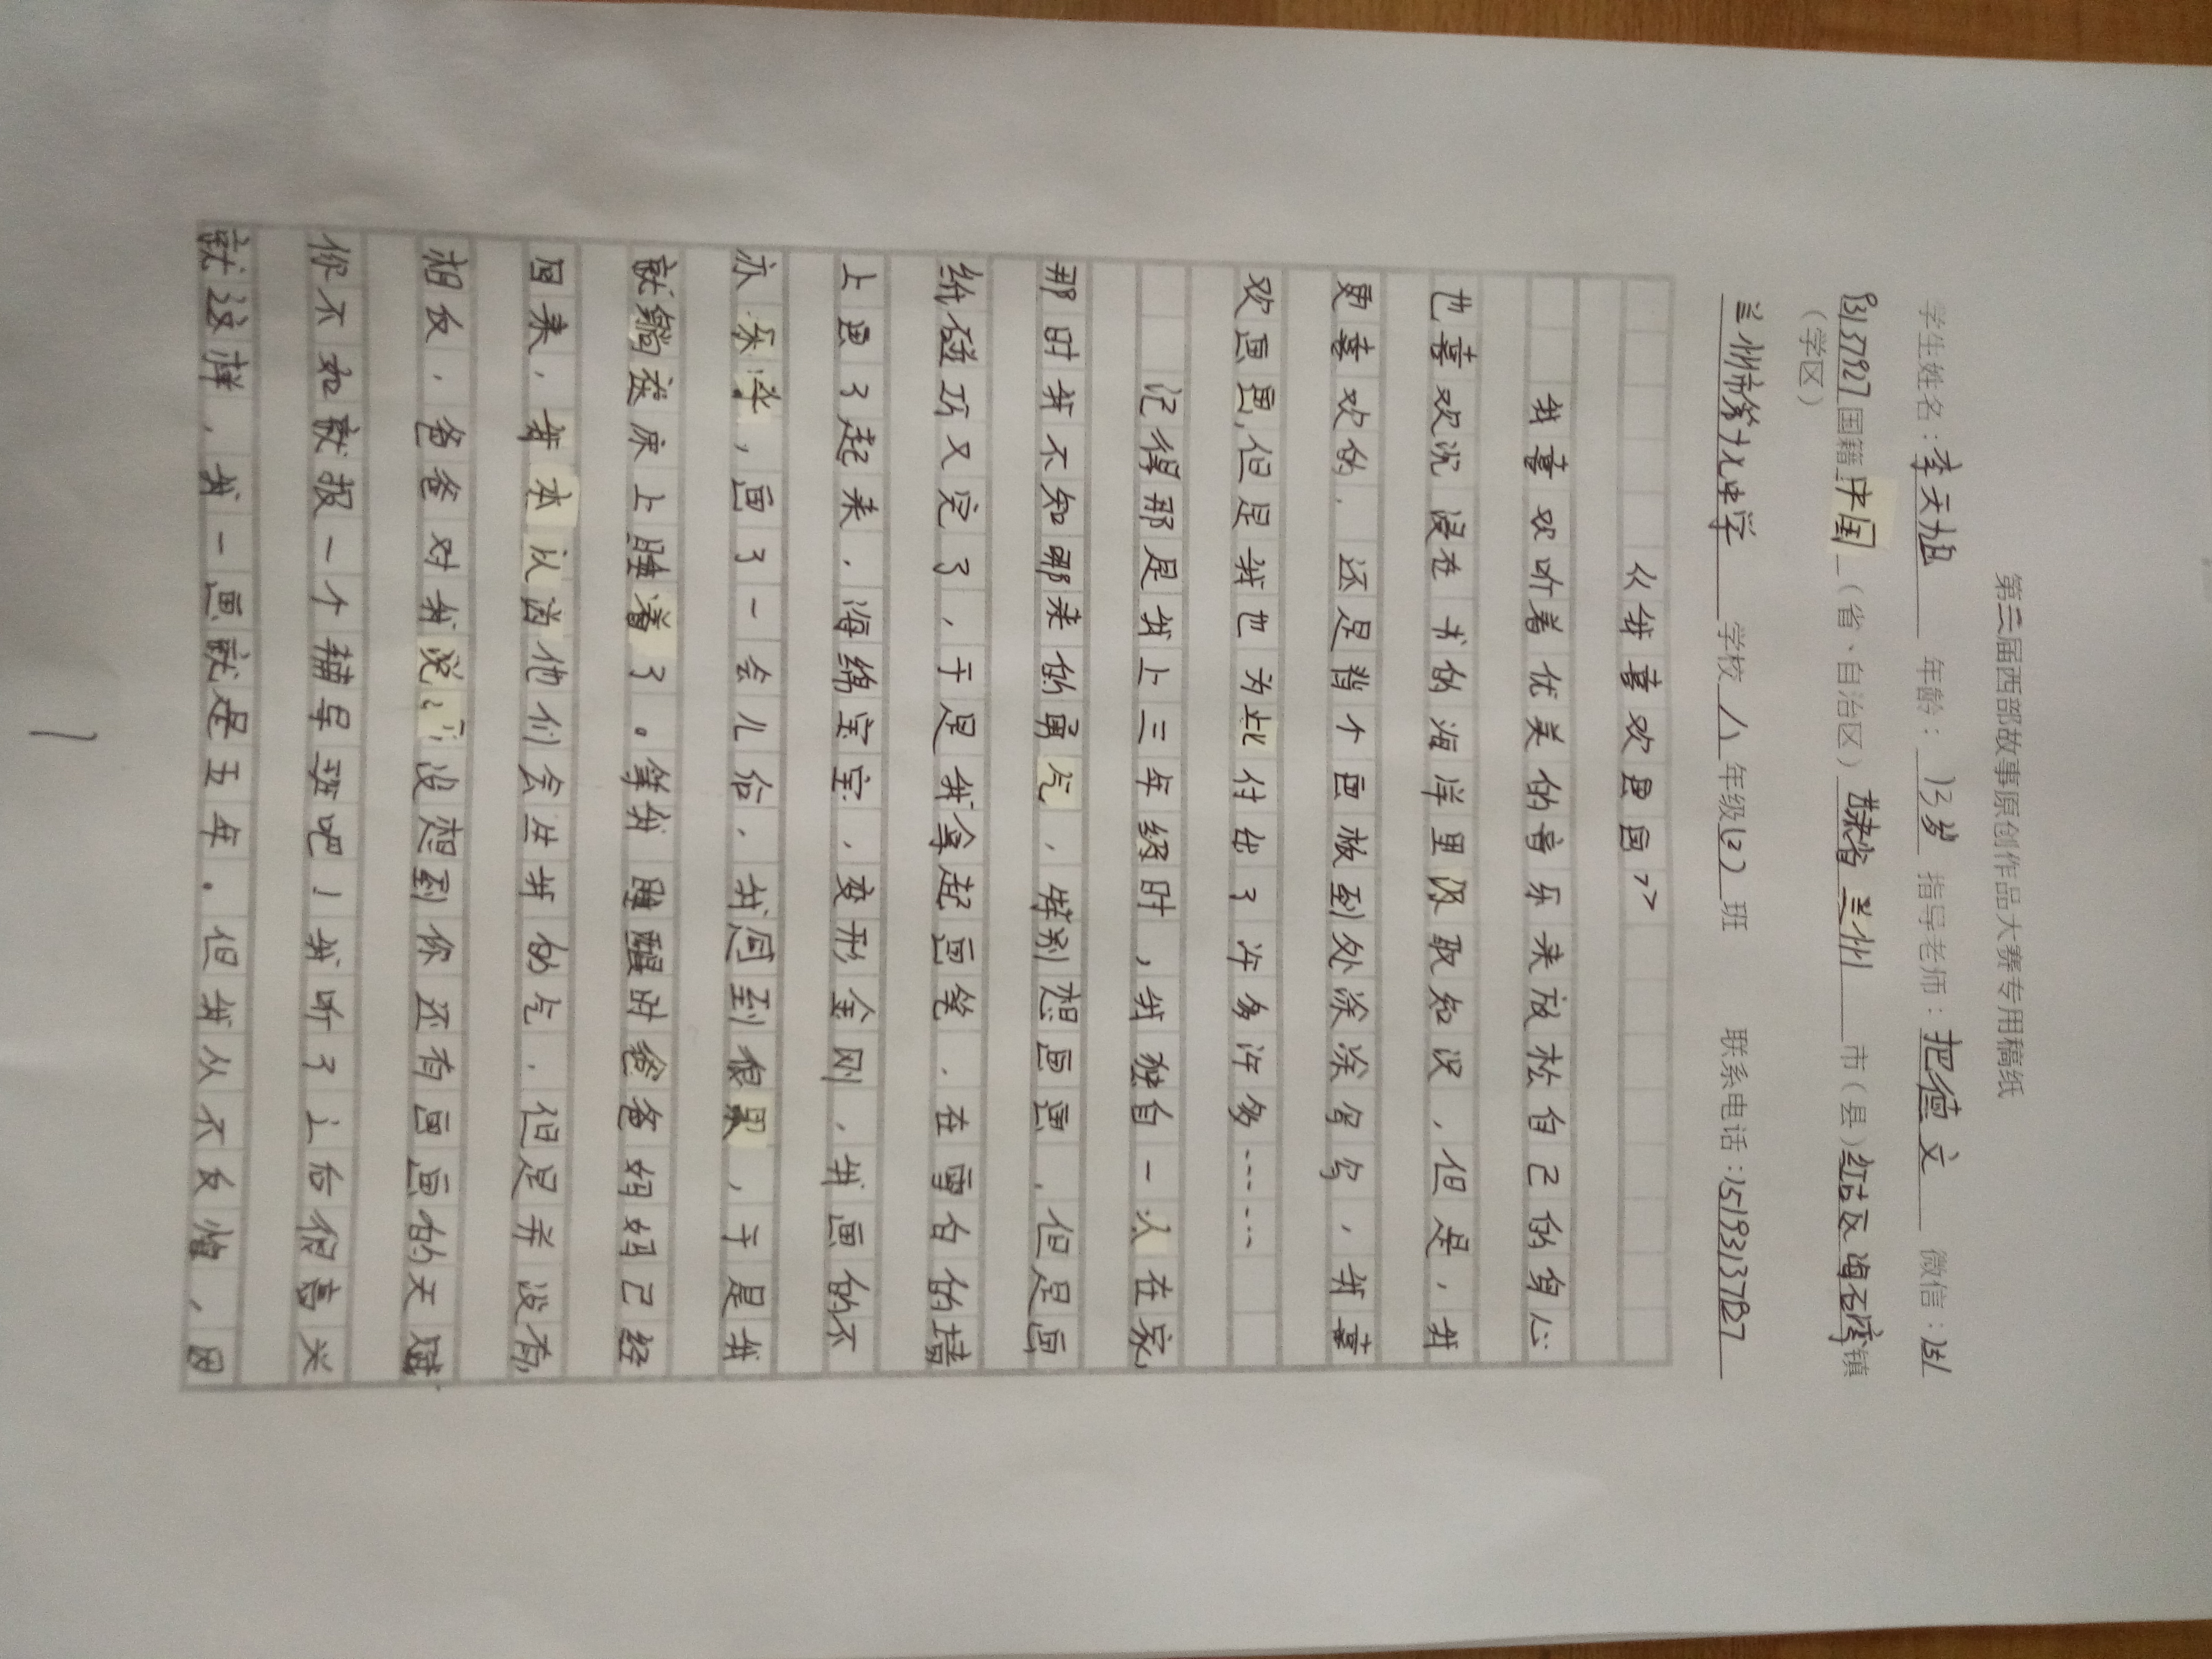 第三届西部故事原创作品大赛专用稿纸
学生姓名：李天旭 年龄：13岁 指导老师：把德文 微信：151
国籍中国（省、自治区）甘肃省兰州市（县）红古区海石湾镇
（学区）
兰州市第十九中学学校八年级（2）班 联系电话：
《我喜欢画画》
我喜欢听着优美的音乐来放松自己的身心
也喜欢沉浸在书的海洋里汲取知识，但是，我
更喜欢的，还是背个画板到处涂涂写写，我喜
欢画画，但是我也为此付出了许多许多……
记得那是我上三年级时，我独自一人在家，
那时我不知哪来的勇气，特别想画画，但是画
纸碰巧又完了，于是我拿起画笔，在雪白的墙
上画了起来，海绵宝宝，变形金刚，我画的不
亦乐乎，画了一会儿后，我感到很累，于是我
就躺在床上睡着了。等我睡醒时爸爸妈妈已经
回来，我本认为他们会生我的气，但是并没有，
相反，爸爸对我说：“没想到你还有画画的天赋
你不如就报一个辅导班吧！我听了之后很高兴
就这样，我一画就是五年。但我从不反悔，因
1